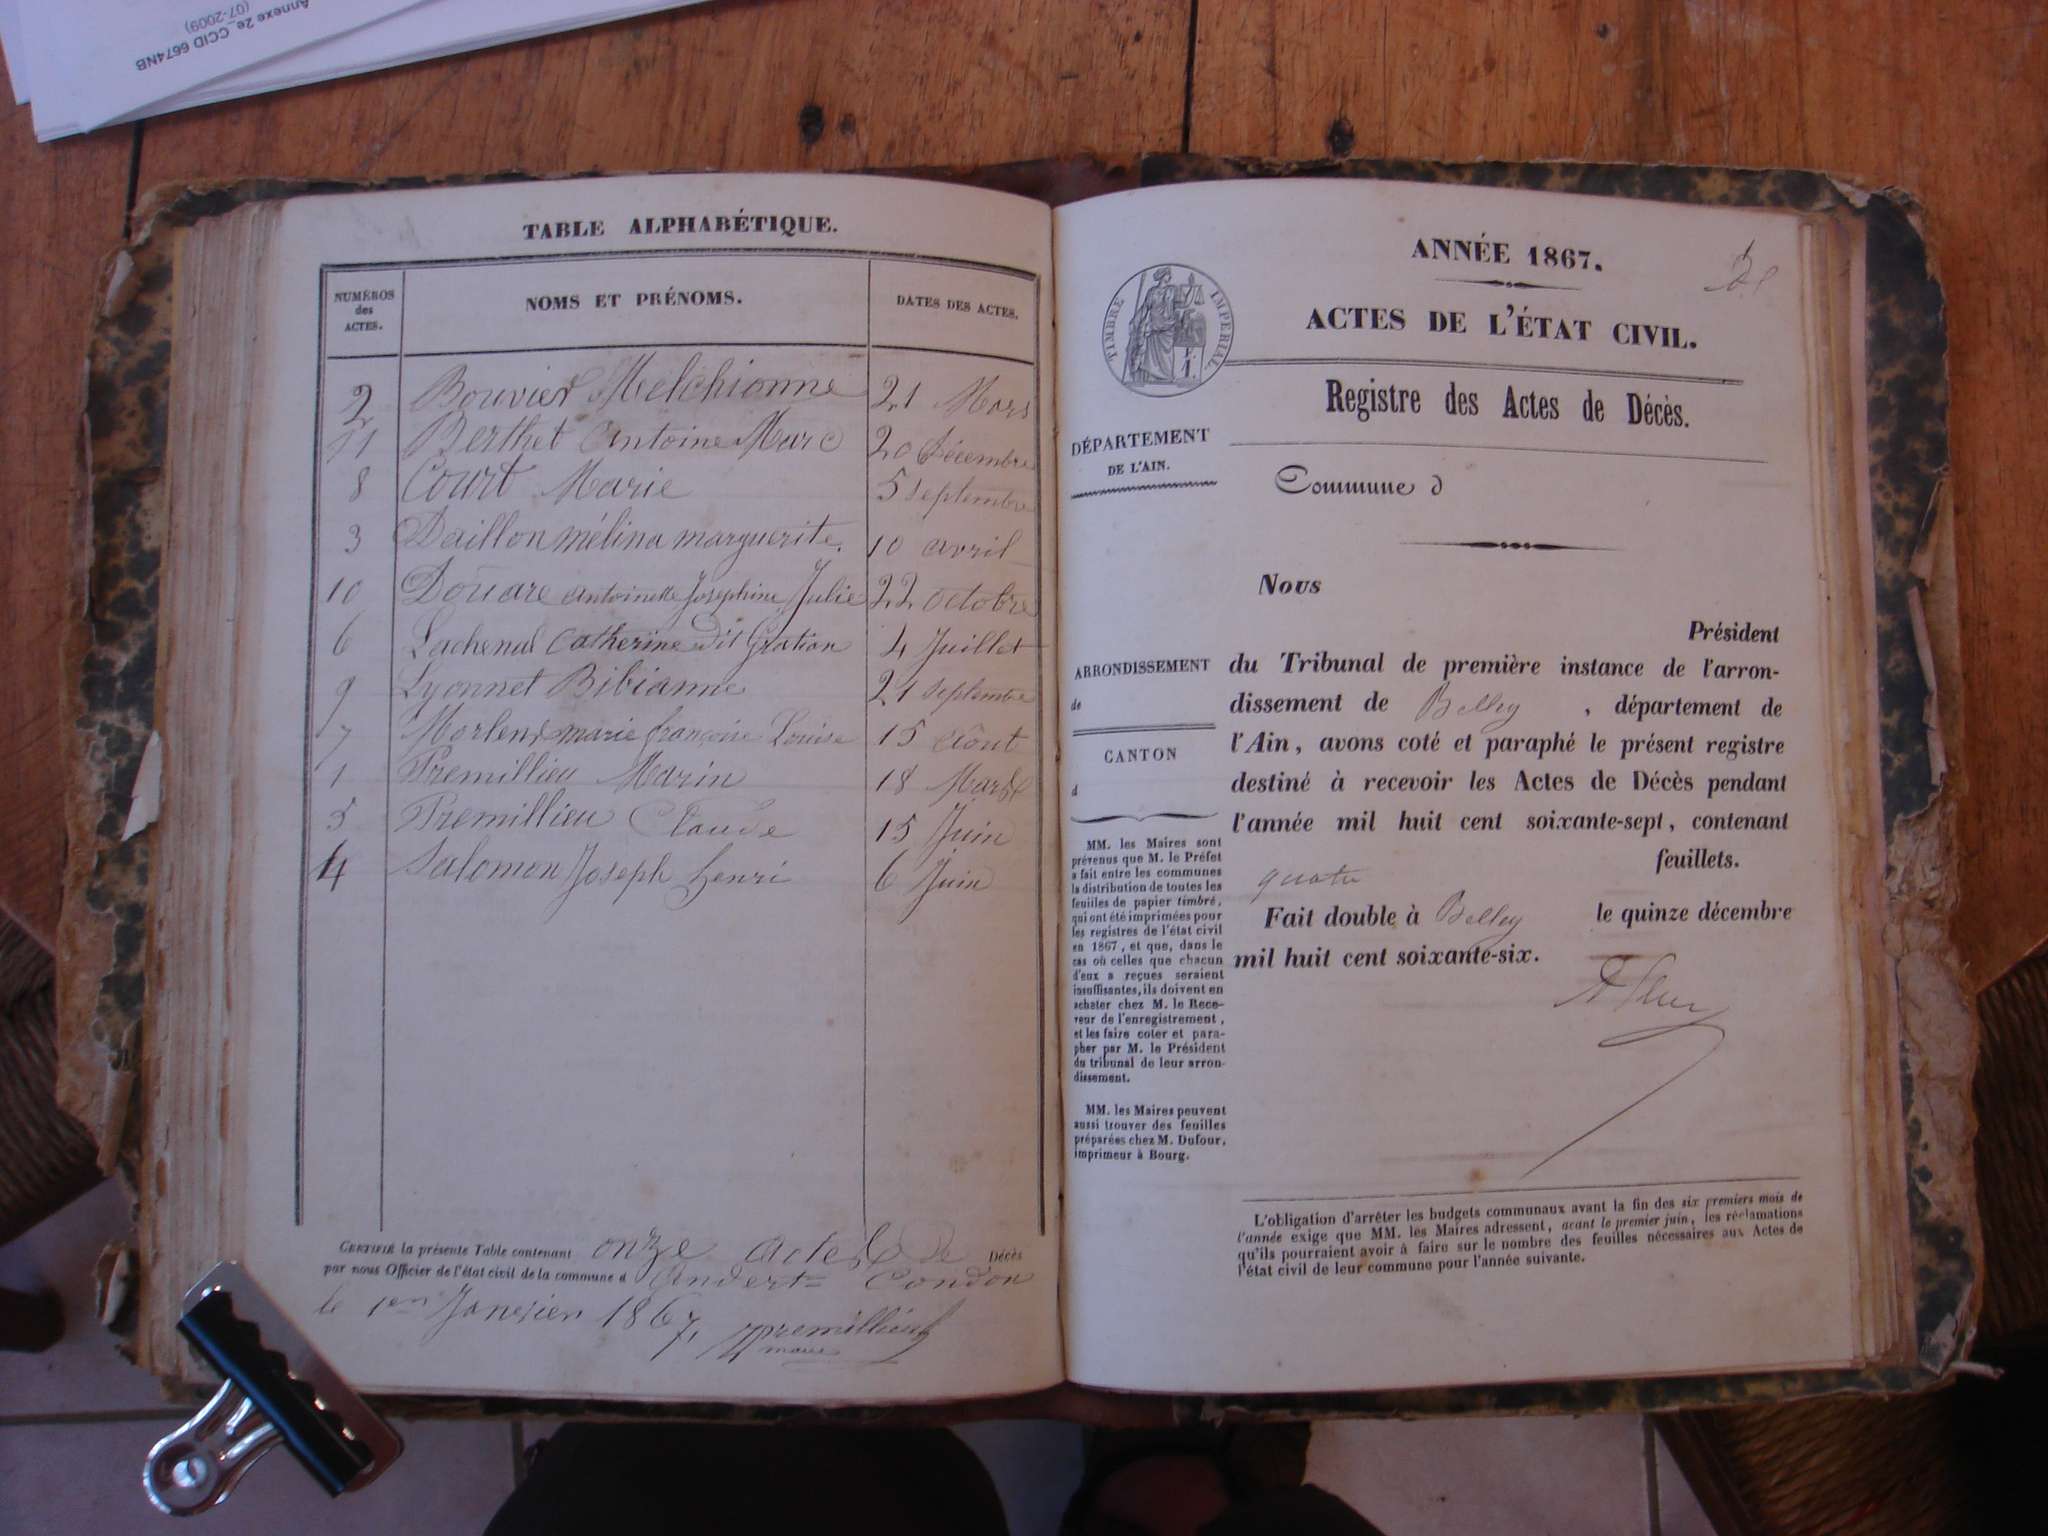 Annexe 2e_CCID 6674NB
(07-2009)
TABLE ALPHABÉTIQUE.
NUMÉROS des ACTES.
NOMS ET PRÉNOMS.
DATES DES ACTES.
2 Bouvier Melchionne 21 Mars
11 Berthet Antoine Marc 20 Décembre
8 Court Marie 5 septembre
3 Daillon mélina marguerite. 10 avril
10 Douare antoinette Josephine Julie 22 octobre
6 Lachenal Catherine dit Gration 4 Juillet
9 Lyonnet Bibianne 21 septembre
7 marie françoise Louise 15 Août
1 Premillieu Marin 18 Mars
5 Premillieu Claude 15 Juin
4 Salomon Joseph henri 6 Juin
CERTIFIÉ la présente Table contenant onze Actes de Décès
par nous Officier de l'état civil de la commune d Andert-Condon
le 1er Janvier 1867,
Premillieu
maire
ANNÉE 1867.
ACTES DE L'ÉTAT CIVIL.
TIMBRE IMPERIAL
Registre des Actes de Décès.
DÉPARTEMENT
DE L'AIN.
Commune d
Nous
Président
ARRONDISSEMENT
de
CANTON
d
du Tribunal de première instance de l'arron-
dissement de Belley , département de
l'Ain, avons coté et paraphé le présent registre
destiné à recevoir les Actes de Décès pendant
l'année mil huit cent soixante-sept, contenant
quatre feuillets.
Fait double à Belley le quinze décembre
mil huit cent soixante-six.
MM. les Maires sont
prévenus que M. le Préfet
a fait entre les communes
la distribution de toutes les
feuilles de papier timbré,
qui ont été imprimées pour
les registres de l'état civil
en 1867, et que, dans le
cas où celles que chacun
d'eux a reçues seraient
insuffisantes, ils doivent en
acheter chez M. le Rece-
veur de l'enregistrement,
et les faire coter et para-
pher par M. le Président
du tribunal de leur arron-
dissement.
MM. les Maires peuvent
aussi trouver des feuilles
préparées chez M. Dufour,
imprimeur à Bourg.
L'obligation d'arrêter les budgets communaux avant la fin des six premiers mois de
l'année exige que MM. les Maires adressent, avant le premier juin, les réclamations
qu'ils pourraient avoir à faire sur le nombre des feuilles nécessaires aux Actes de
l'état civil de leur commune pour l'année suivante.